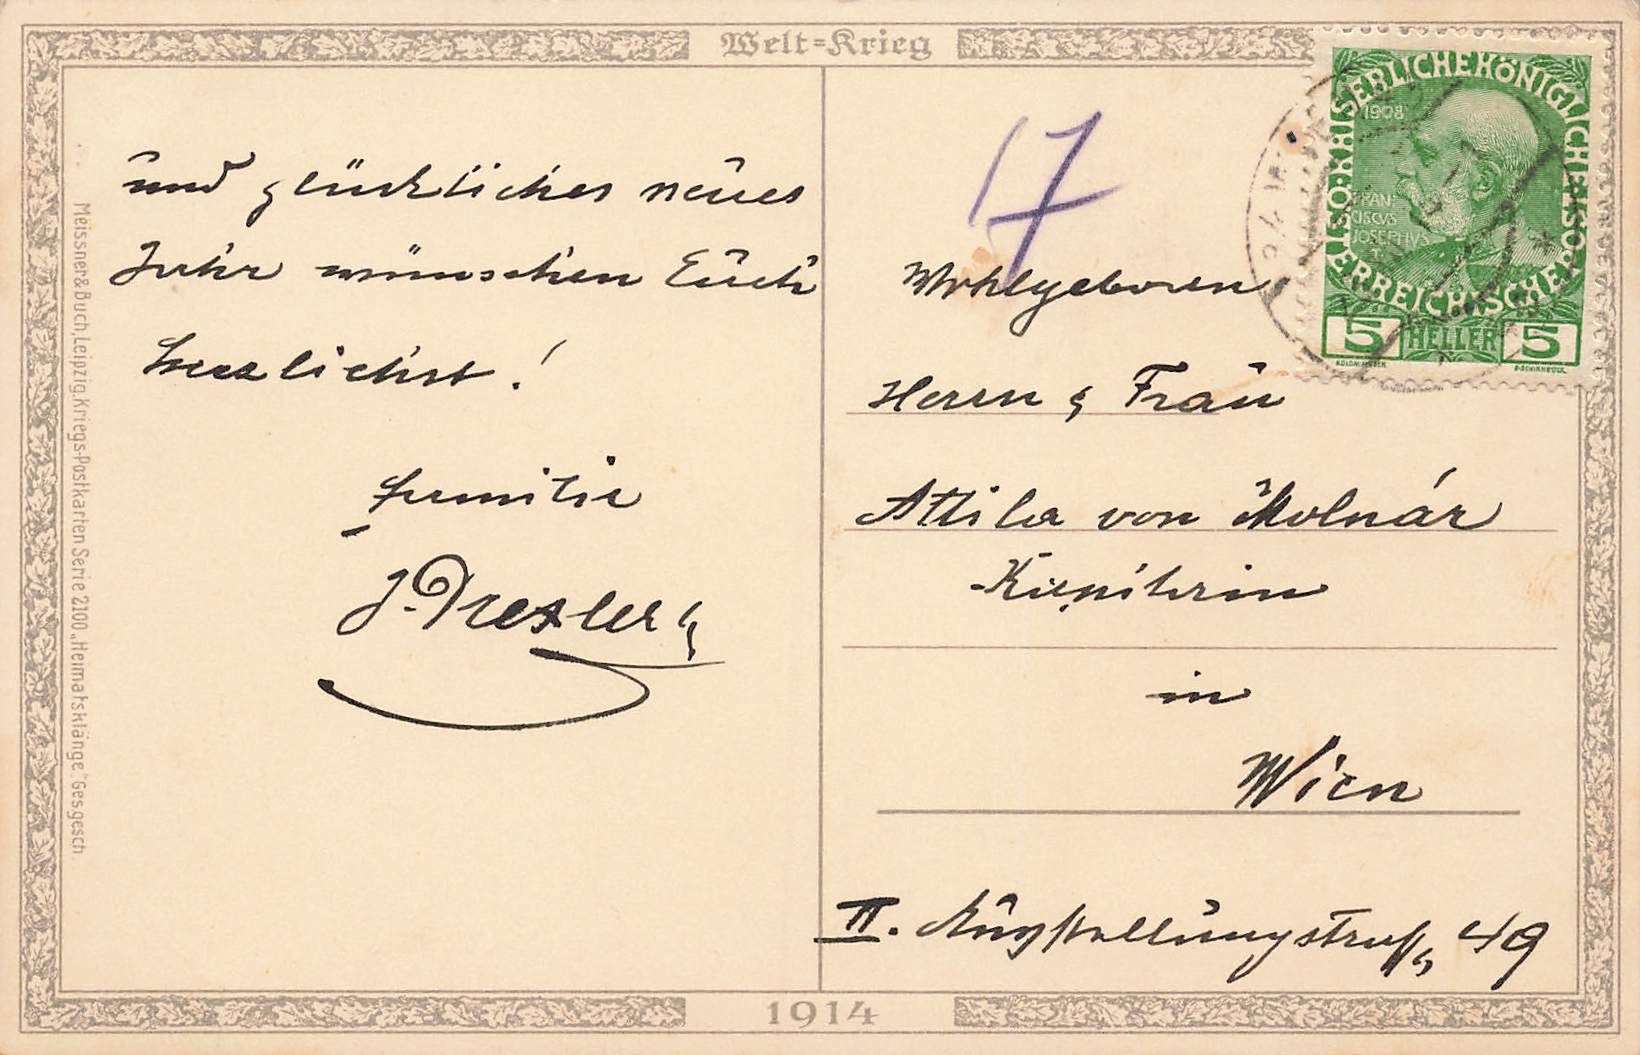 Welt=Krieg
und glückliches neues
Jahr wünschen Euch
herzlichst!
Familie
J. Drexler
Wohlgeboren
Herrn & Frau
Attila von Molnár
in
Wien
II. Ausstellungstraße 49
17
KAISERLICHE KÖNIGLICHE ÖSTERREICHISCHE POST
1908
FRAN
CISCVS
JOSEPHVS
5 HELLER 5
Meissner & Buch, Leipzig, Kriegs-Postkarten Serie 2100 „Heimatsklänge." Ges. gesch
1914